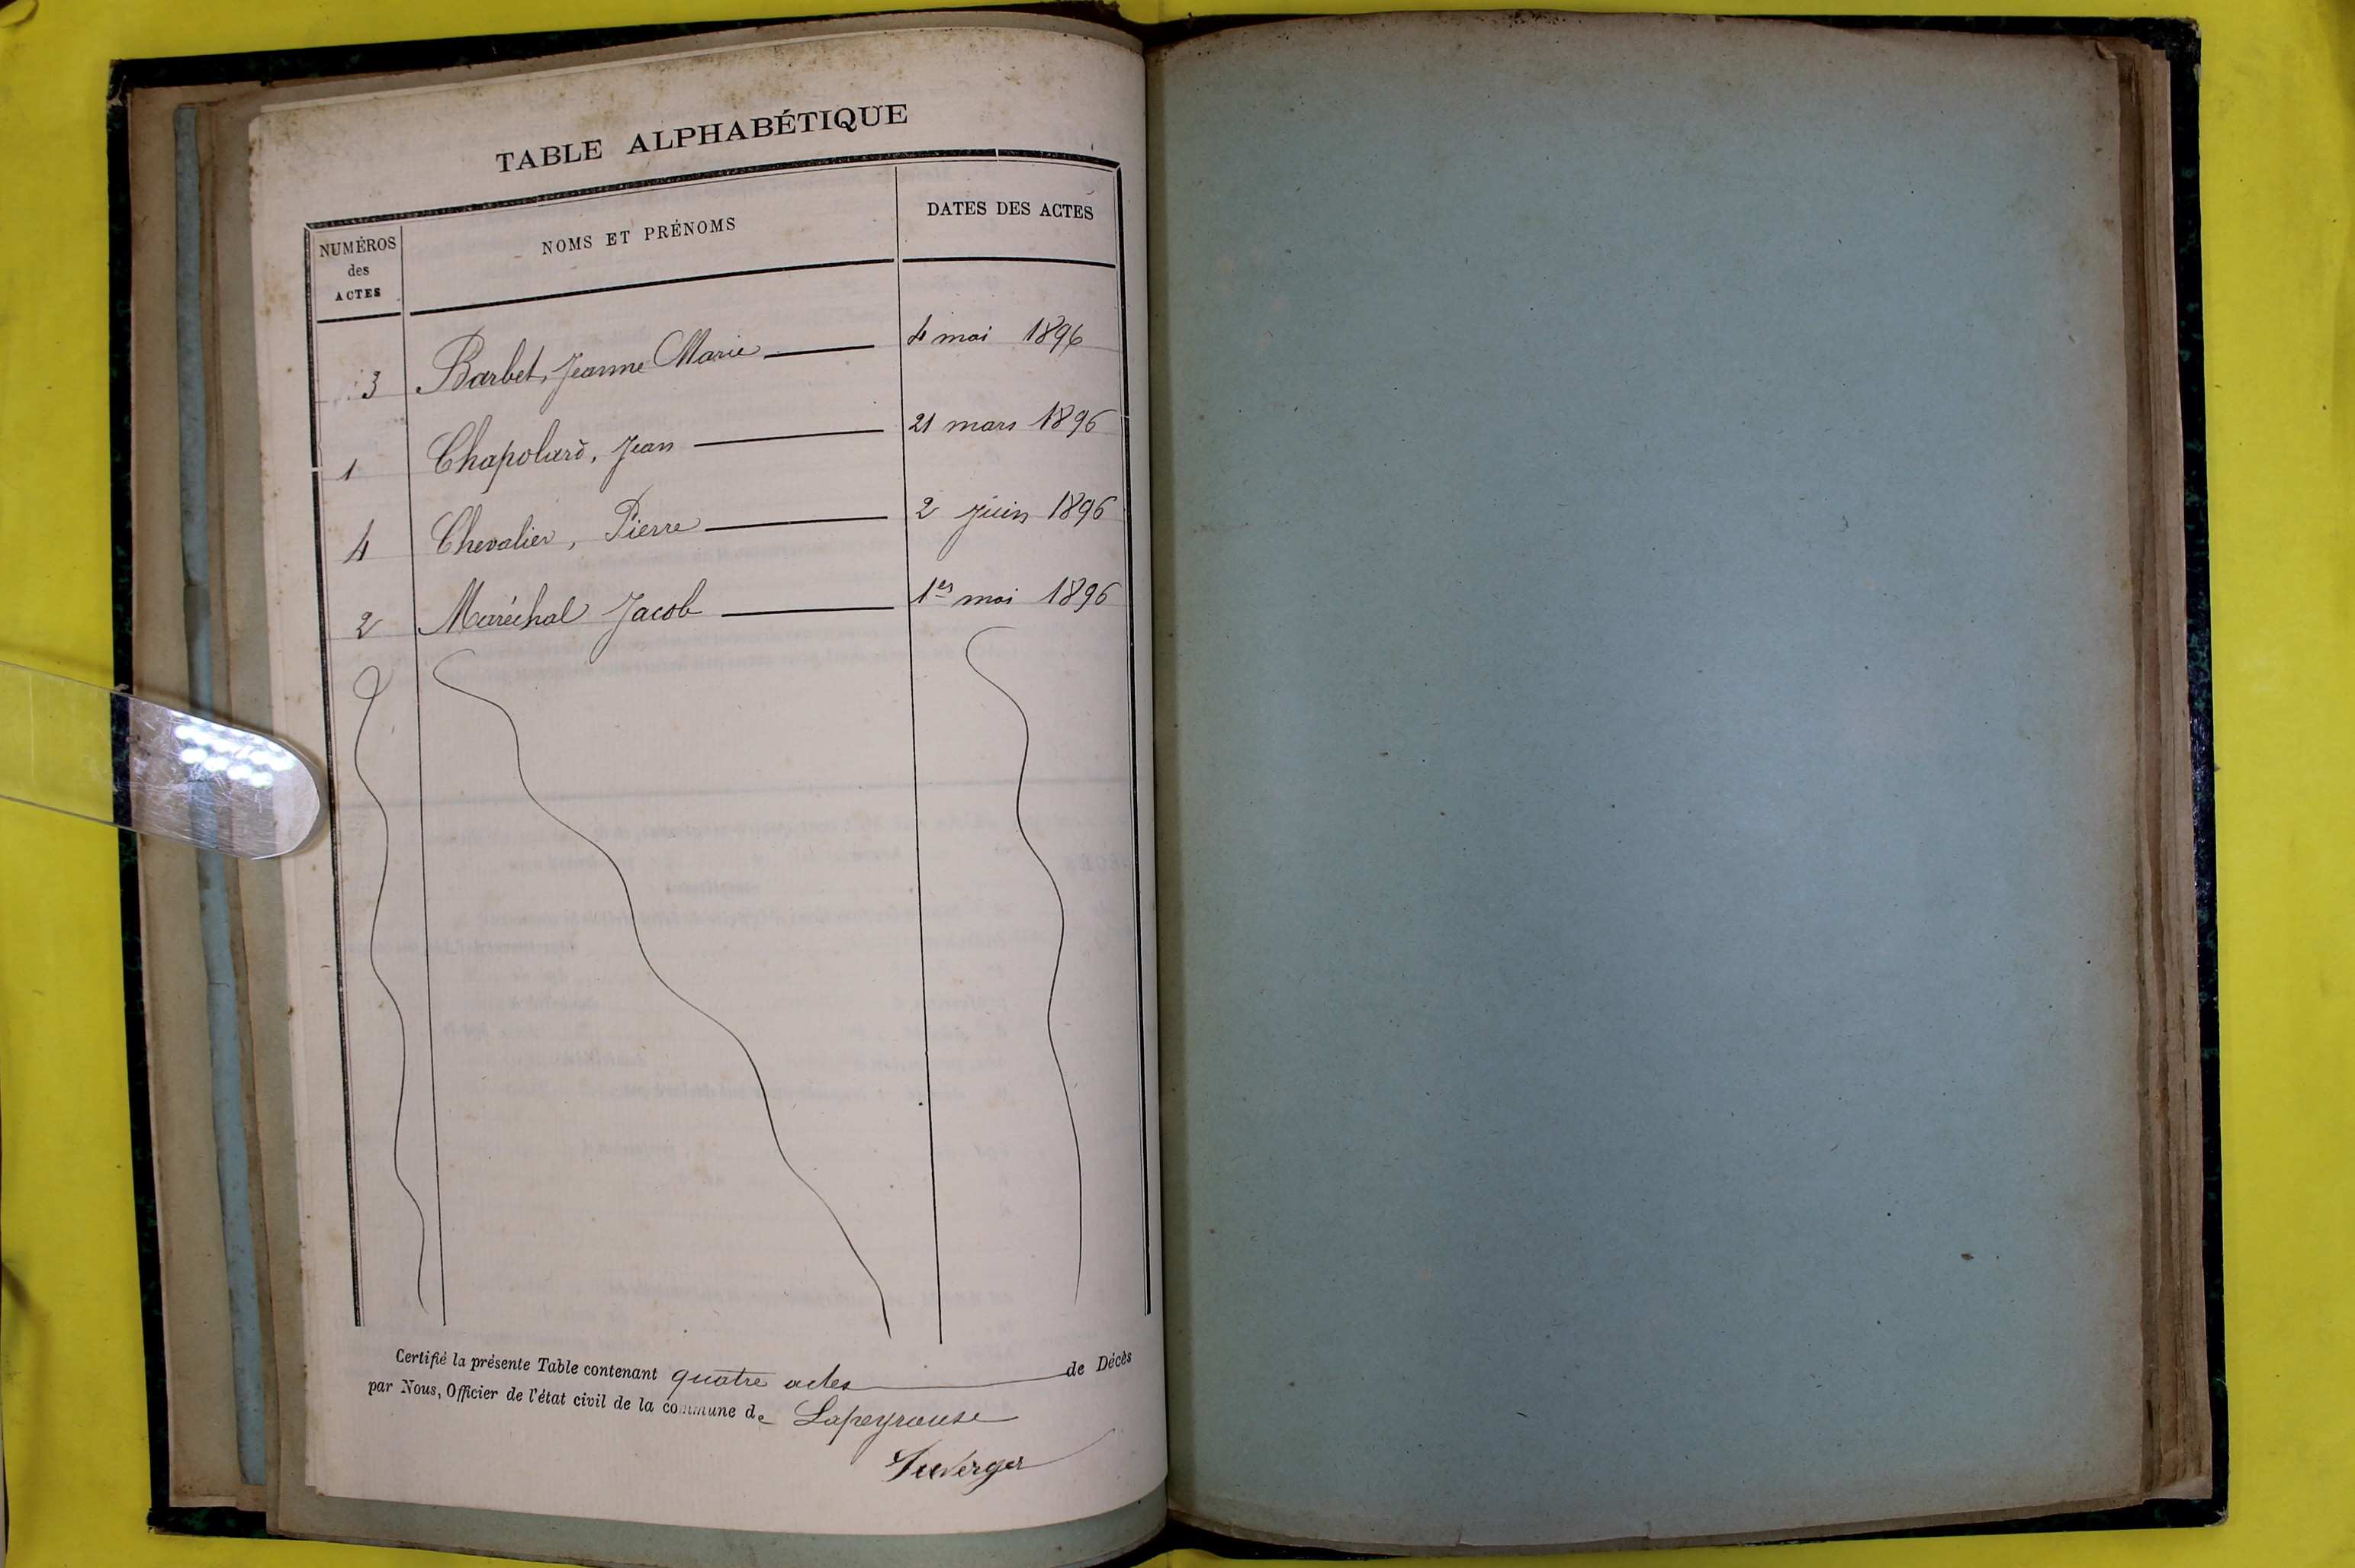 TABLE ALPHABÉTIQUE
NUMÉROS
des
ACTES
NOMS ET PRÉNOMS
DATES DES ACTES
3 Barbet, Jeanne Marie 4 mai 1896
1 Chapolard, Jean 21 mars 1896
4 Chevalier, Pierre 2 juin 1896
2 Maréchal Jacob 1er mai 1896
Certifié la présente Table contenant quatre actes de Décès
par Nous, Officier de l'état civil de la commune de Lapeyrouse